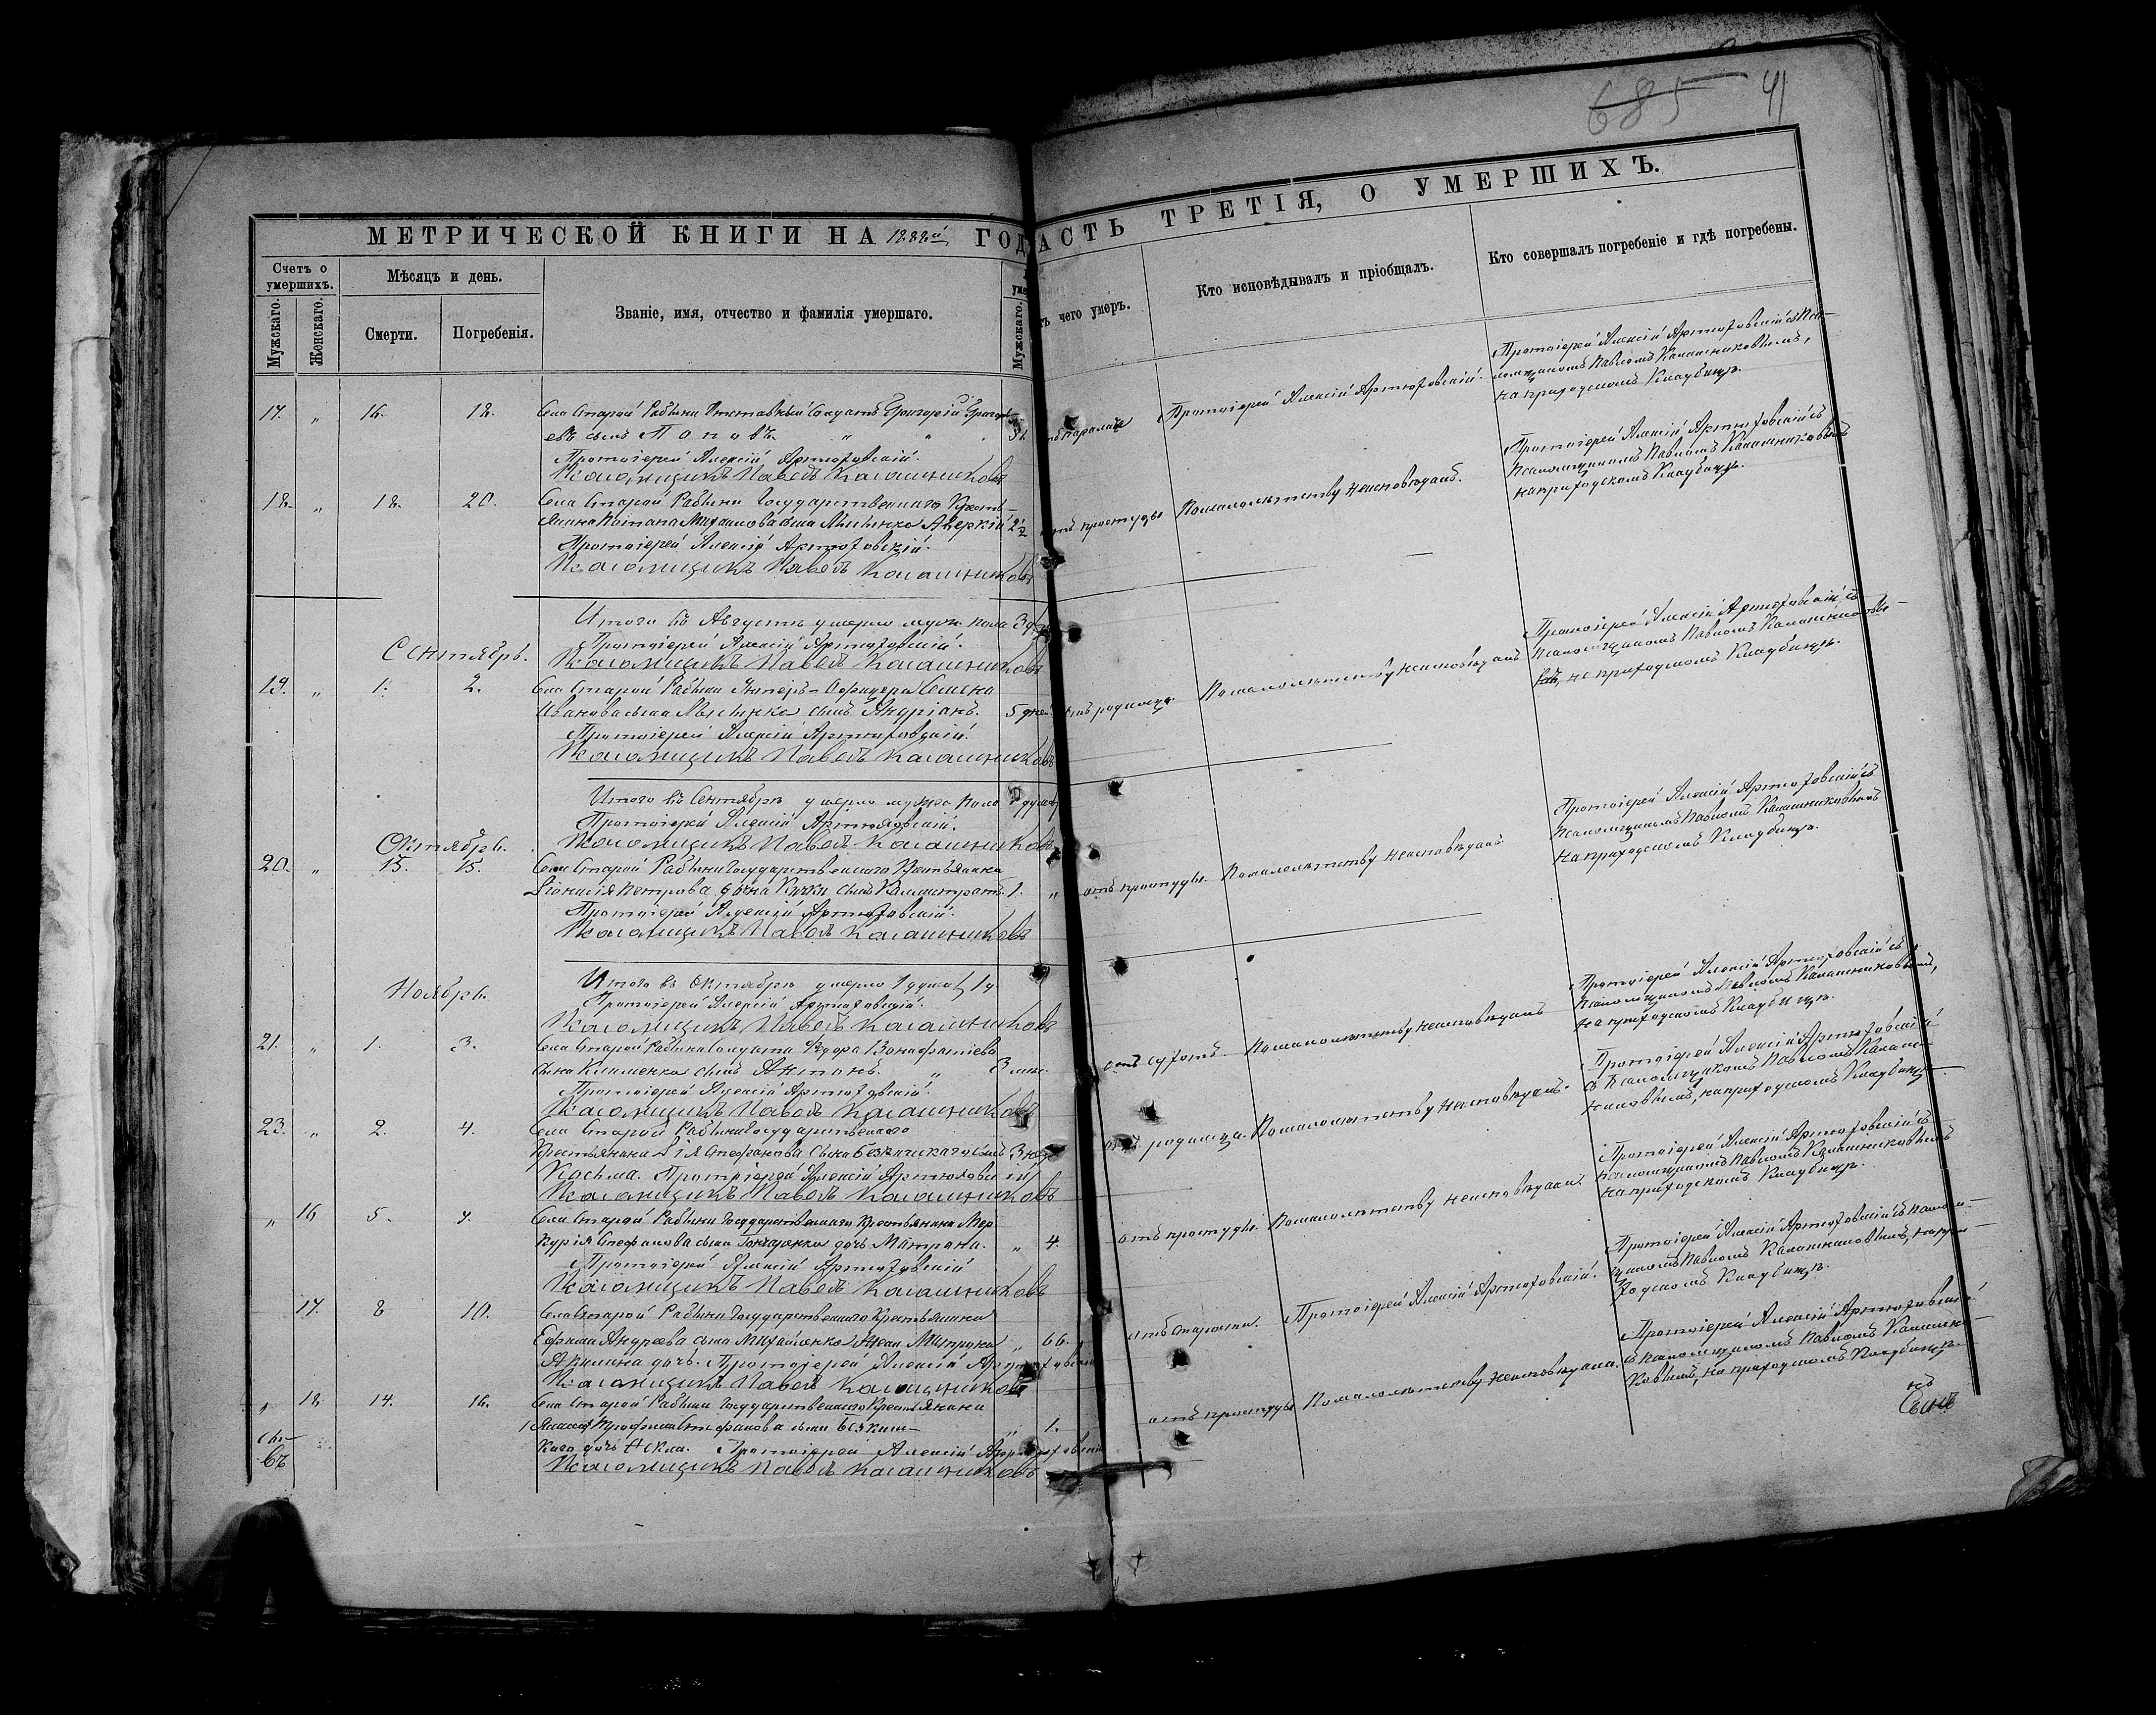 685 41
МЕТРИЧЕСКОЙ КНИГИ НА 1888й ГОД
АСТЬ ТРЕТІЯ, О УМЕРШИХЪ.
Счетъ о умершихъ.
Мѣсяцъ и день.
Званіе, имя, отчество и фамилія умершаго.
Мужскаго.
Женскаго.
Смерти.
Погребенія.
Мужскаго.
чего умеръ.
Кто исповѣдывалъ и пріобщалъ.
Кто совершалъ погребеніе и гдѣ погребены.
17. " 16. 18. Села Старой Рябины Отставный Солдатъ Григорій
евъ сынъ Поповъ. " "
Протоіерей Алексій Артюховскій.
Псаломщикъ Павелъ Калашниковъ
Протоіерей Алексій Артюховскій.
Протоіерей Алексій Артюховскій съ Пса-
ломщикомъ Павломъ Калашниковымъ,
на приходскомъ кладбищѣ.
18. " 18. 20. Села Старой Рябины Государственнаго Кресть-
янина Михайлова сына Аверкій 2½
Протоіерей Алексій Артюховскій.
Псаломщикъ Павелъ Калашниковъ
отъ простуды
По малолѣтству неисповѣданъ.
Протоіерей Алексій Артюховскій съ
Псаломщикомъ Павломъ Калашниковымъ
на приходскомъ кладбищѣ.
Итого въ Августѣ умерло муж. пола 3
Протоіерей Алексій Артюховскій.
Псаломщикъ Павелъ Калашниковъ
Сентябрь.
19. " 1. 2. Села Старой Рябины Унтеръ-Офицера Семена
Иванова сына сынъ Андріанъ. 5 дней
Протоіерей Алексій Артюховскій.
Псаломщикъ Павелъ Калашниковъ
отъ родимца.
По малолѣтству неисповѣданъ
Протоіерей Алексій Артюховскій съ
Псаломщикомъ Павломъ Калашниковы-
на приходскомъ кладбищѣ.
Итого въ Сентябрѣ умерло мужск. пола 1 душа
Протоіерей Алексій Артюховскій.
Псаломщикъ Павелъ Калашниковъ
Октябрь.
20. " 13. 15. Села Старой Рябины Государственнаго Крестьянина
Петрова сына сынъ Каллистратъ 1. "
Протоіерей Алексій Артюховскій.
Псаломщикъ Павелъ Калашниковъ
отъ простуды.
По малолѣтству неисповѣданъ.
Протоіерей Алексій Артюховскій съ
Псаломщикомъ Павломъ Калашниковымъ
на приходскомъ кладбищѣ.
Итого въ Октябрѣ умерло 1 душа
Протоіерей Алексій Артюховскій.
Псаломщикъ Павелъ Калашниковъ
Ноябрь.
21. " 1. 3. Села Старой Рябины Солдата Ѳедора
сына Клименко сынъ Антонъ. " 3
Протоіерей Алексій Артюховскій.
Псаломщикъ Павелъ Калашниковъ
По малолѣтству неисповѣданъ
Протоіерей Алексій Артюховскій съ
Псаломщикомъ Павломъ Калашниковымъ,
на приходскомъ кладбищѣ.
23. " 2. 4. Села Старой Рябины Государственнаго
Крестьянина Стефанова сына сынъ 3
Косьма. Протоіерей Алексій Артюховскій
Псаломщикъ Павелъ Калашниковъ
отъ родимца.
По малолѣтству неисповѣданъ.
Протоіерей Алексій Артюховскій
съ Псаломщикомъ Павломъ Калаш-
никовымъ, на приходскомъ кладбищѣ
" 16 5. 7. Села Старой Рябины Государственнаго Крестьянина Мер-
курія Стефанова сына Гончаренко дочь Матрона. " 4.
Протоіерей Алексій Артюховскій
Псаломщикъ Павелъ Калашниковъ
отъ простуды.
По малолѣтству неисповѣдана.
Протоіерей Алексій Артюховскій съ
Псаломщикомъ Павломъ Калашниковымъ
на приходскомъ кладбищѣ.
17. 8 10. Села Старой Рябины Государственнаго Крестьянина
Ефима Андреева сына Михайленко жена " 66.
Акилина дочь. Протоіерей Алексій Артюховскій
Псаломщикъ Павелъ Калашниковъ
отъ старости.
Протоіерей Алексій Артюховскій.
Протоіерей Алексій Артюховскій съ Псалом-
щикомъ Павломъ Калашниковымъ, на при-
ходскомъ кладбищѣ.
" 18 14. 16. Села Старой Рябины Государственнаго Крестьянина
Трофима Стефанова сына " 1.
дочь Ѳекла. Протоіерей Алексій Артюховскій
Псаломщикъ Павелъ Калашниковъ
отъ простуды
По малолѣтству неисповѣдана.
Протоіерей Алексій Артюховскій
съ Псаломщикомъ Павломъ Калашни-
ковымъ, на приходскомъ кладбищѣ.